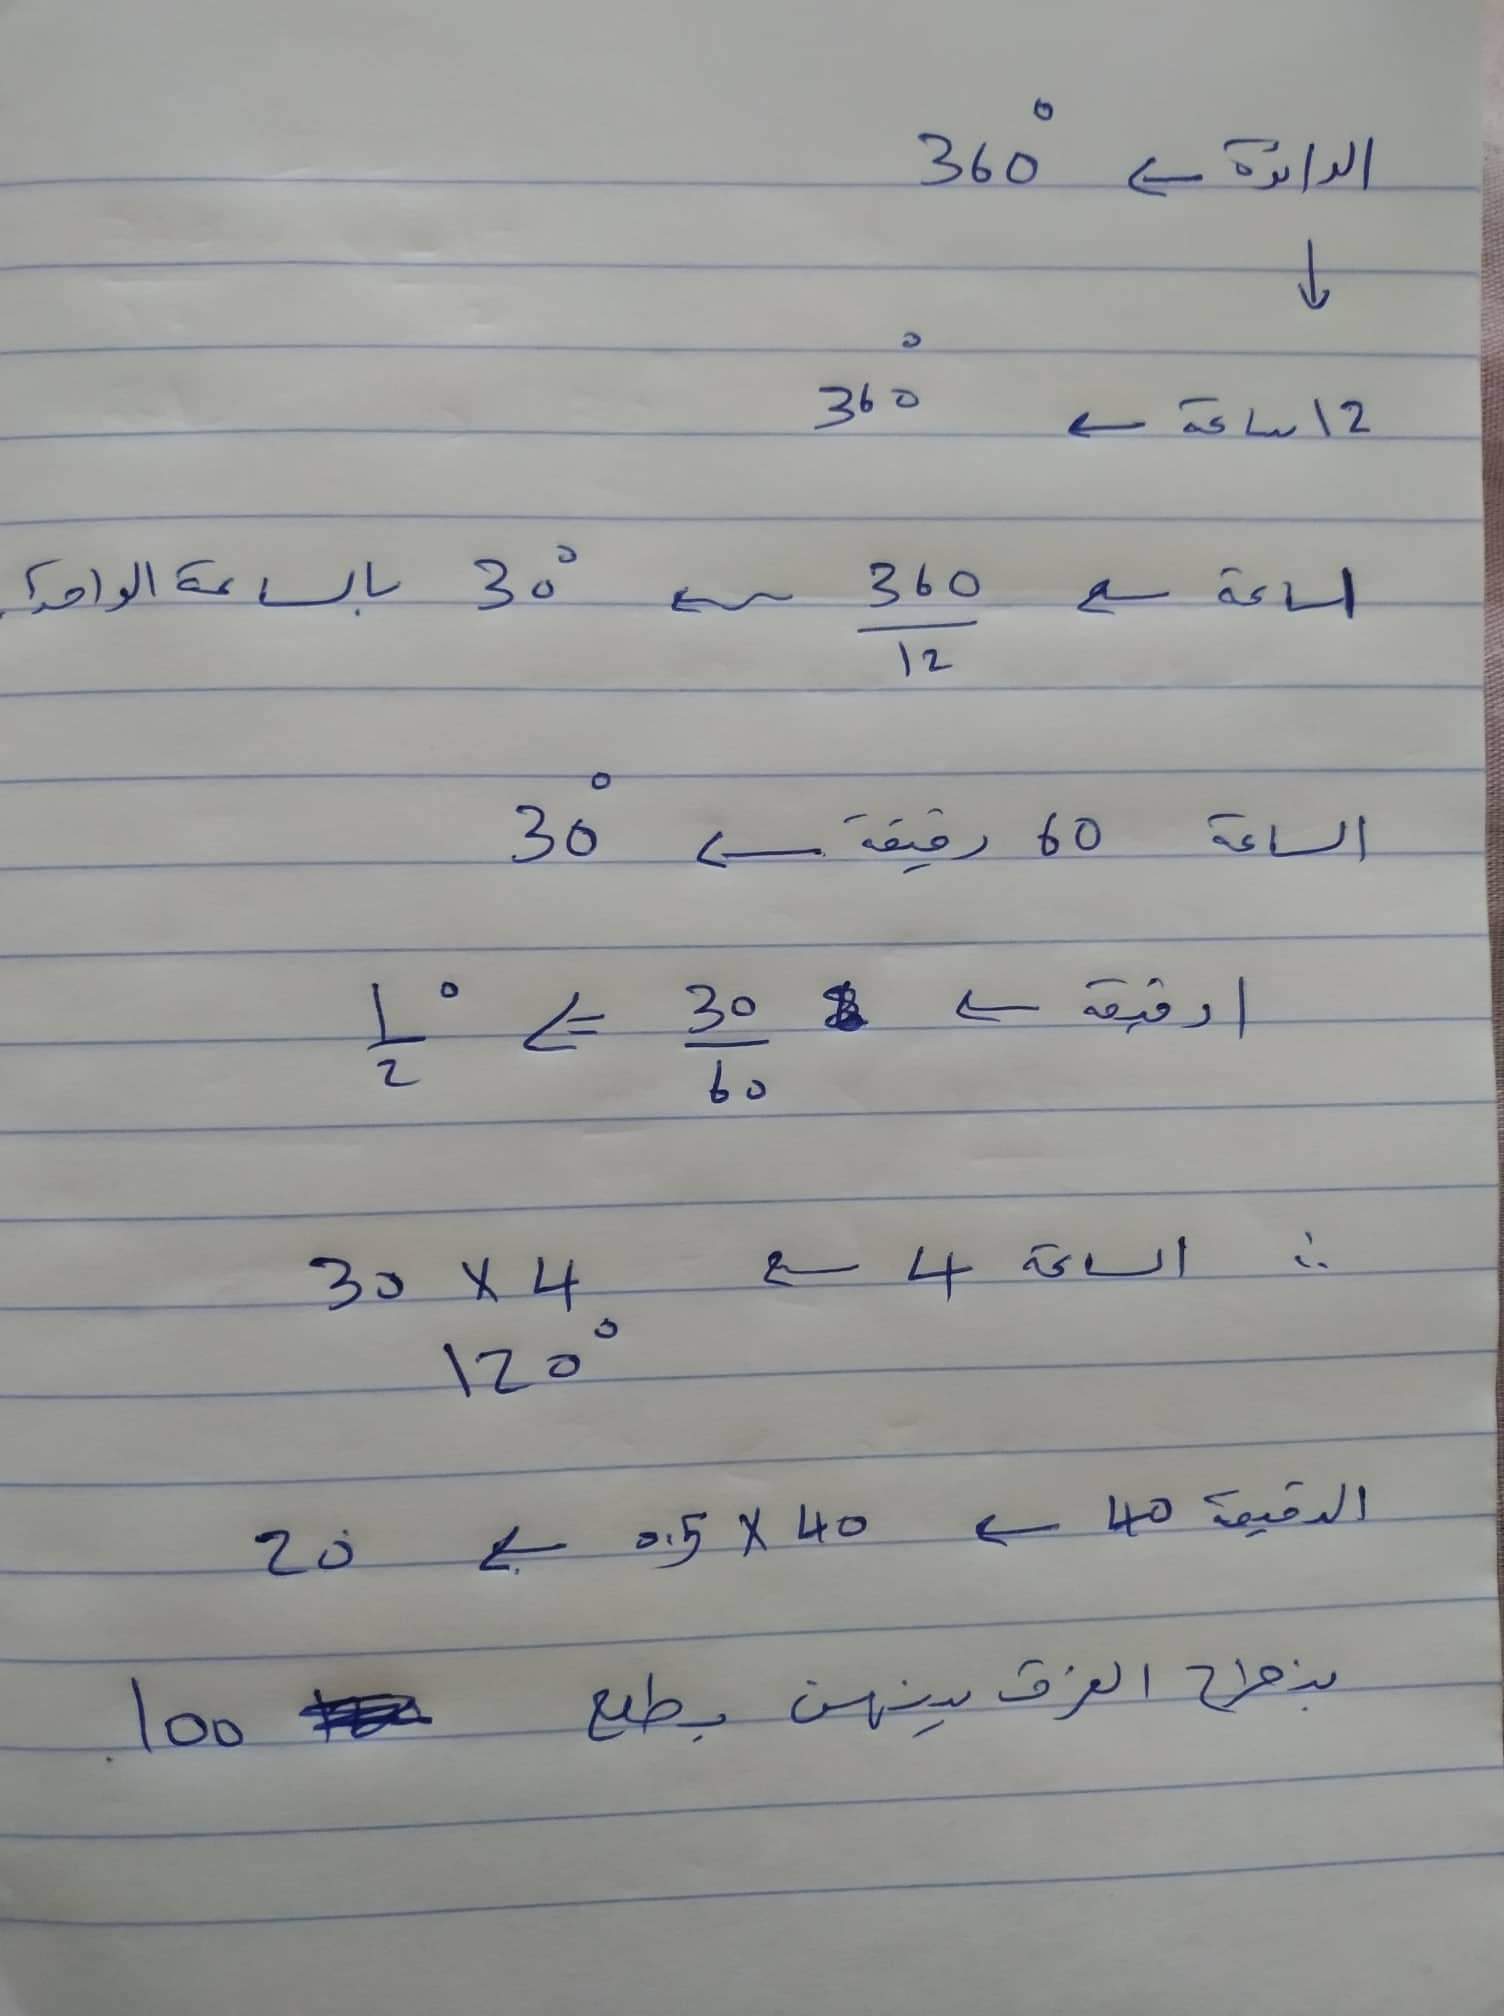 الدائرة ← 360°
↓
12 ساعة ← 360°
الساعة ← 360/12 ← 30° بالساعة الواحدة
الساعة 60 دقيقة ← 30°
1 دقيقة ← 30/60 ⇐ 1/2°
∴ الساعة 4 ← 30 × 4
120°
الدقيقة 40 ← 0.5 × 40 ← 20
بنطرح الفرق بينهن بطلع 100